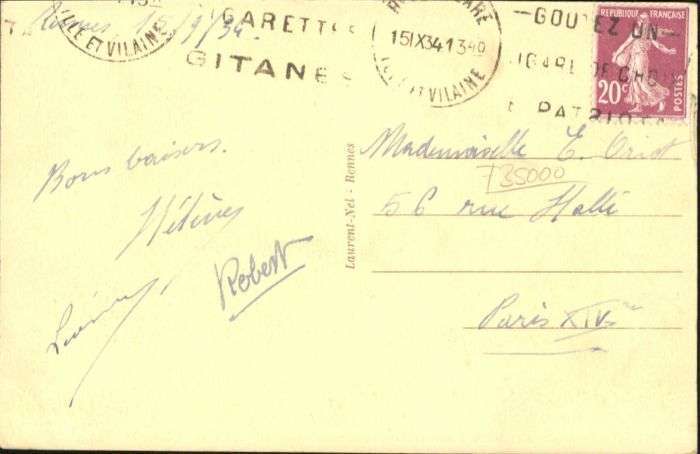 Rennes, 15/9/34.
ILLE ET VILAINE
GARETTE
GITANE
15 IX 34 13 40
ET VILAINE
GOUTEZ UN
IGARE DE CHOIX
PATRIOTE
REPUBLIQUE FRANÇAISE
20c
POSTES
Bons baisers.
Robert
Laurent-Nel - Rennes
Mademoiselle E. Oriot
735000
56 rue Hallé
Paris XIVe